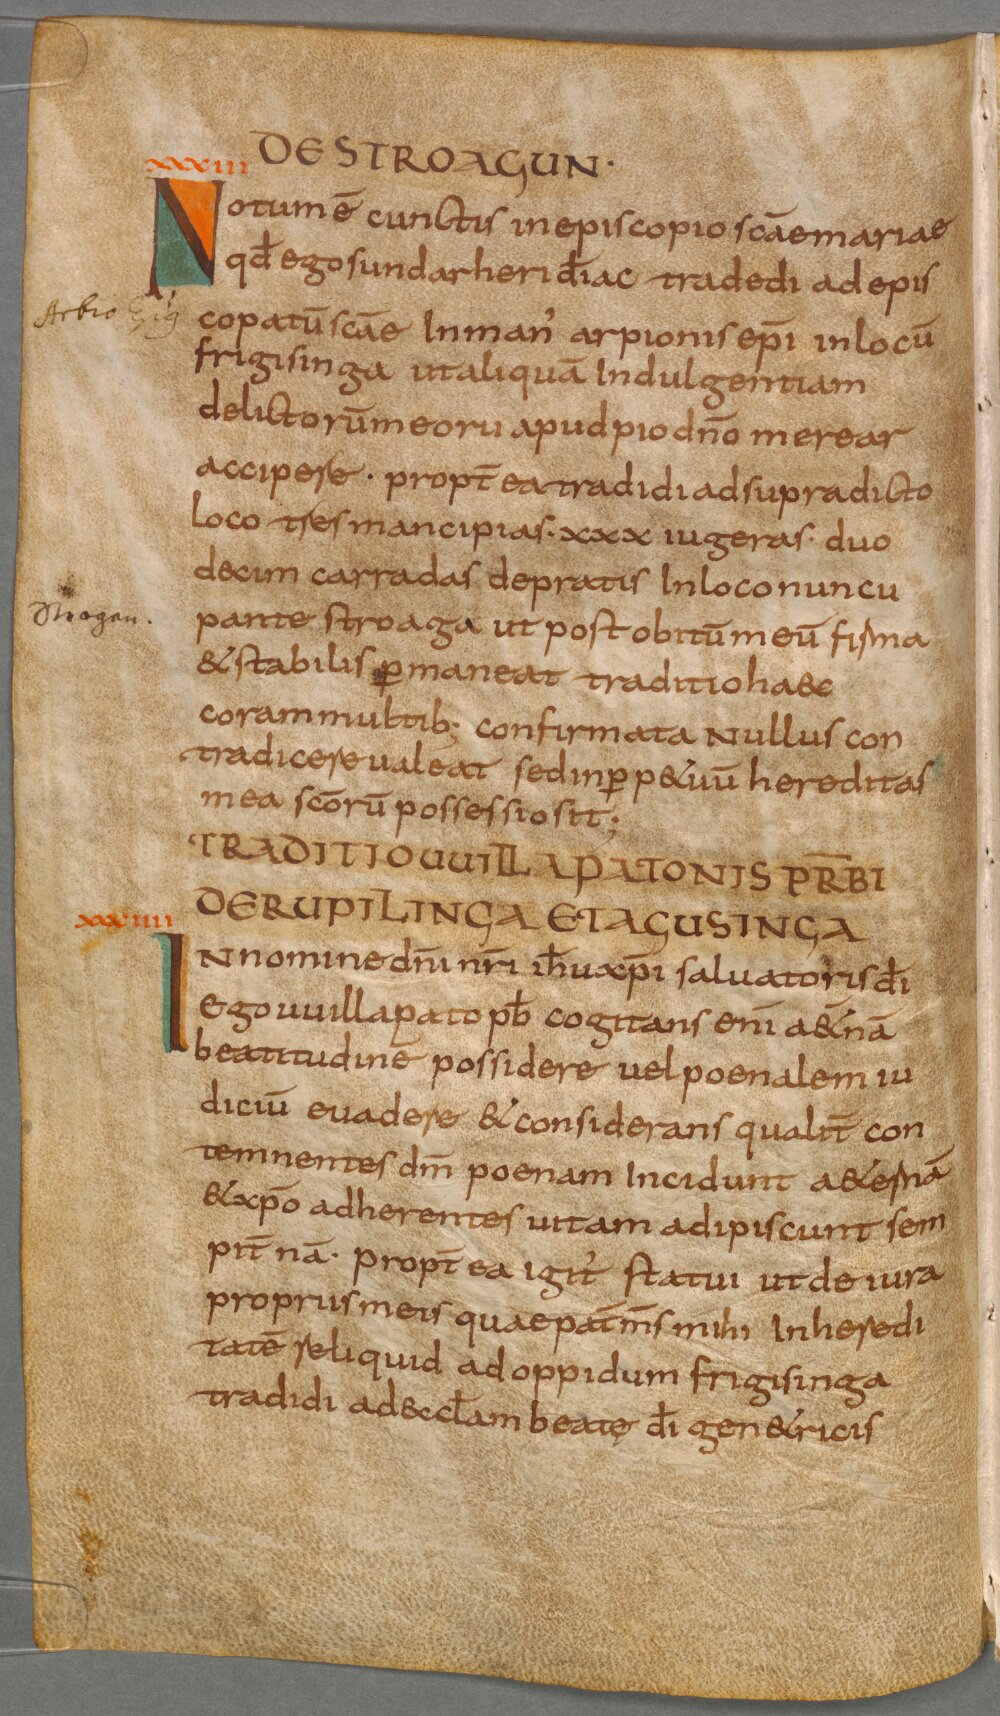 DE STROAGUN·
xxxiii
Notum ē cunctis in episcopio scāe mariae
qđ ego sundarheri điac tradedi ad epis
Arbio
copatū scāe In man' arpionis ep̄i in locū
frigisinga ut aliquā Indulgentiam
delictorū meoru apud pio dn̄o merear
accipere · propt̄ ea tradidi ad supradicto
loco tres mancipias · xxx iugeras · duo
decim carradas de pratis In loco nuncu
Strogen.
pante stroaga ut post obitū meū firma
&stabilis ꝑmaneat traditio ha&c
coram multib; confirmata Nullus con
tradicere ualeat sed in ꝑp&uū hereditas
mea scōrū possessio sit;
TRADITIO UUILLAPATONIS PR̄BI
DE RUPILINGA ET AGUSINGA
xxxiiii
IN nomine dn̄i nr̄i ih̄u xp̄i saluatoris đi
ego uuillapato pƀ cogitans enī a&nā
beatitudinē possidere uel poenalem iu
diciū euadere & considerans qualit̄ con
temnentes dm̄ poenam Incidunt a&ernā
&xp̄o adherentes uitam adipiscunt sem
pit̄nā · propt̄ ea igit' statui ut de iura
propriis meis quae pat̄ m̄s mihi In heredi
tatē reliquid ad oppidum frigisinga
tradidi ad &ccl̄am beatę đi gen&ricis